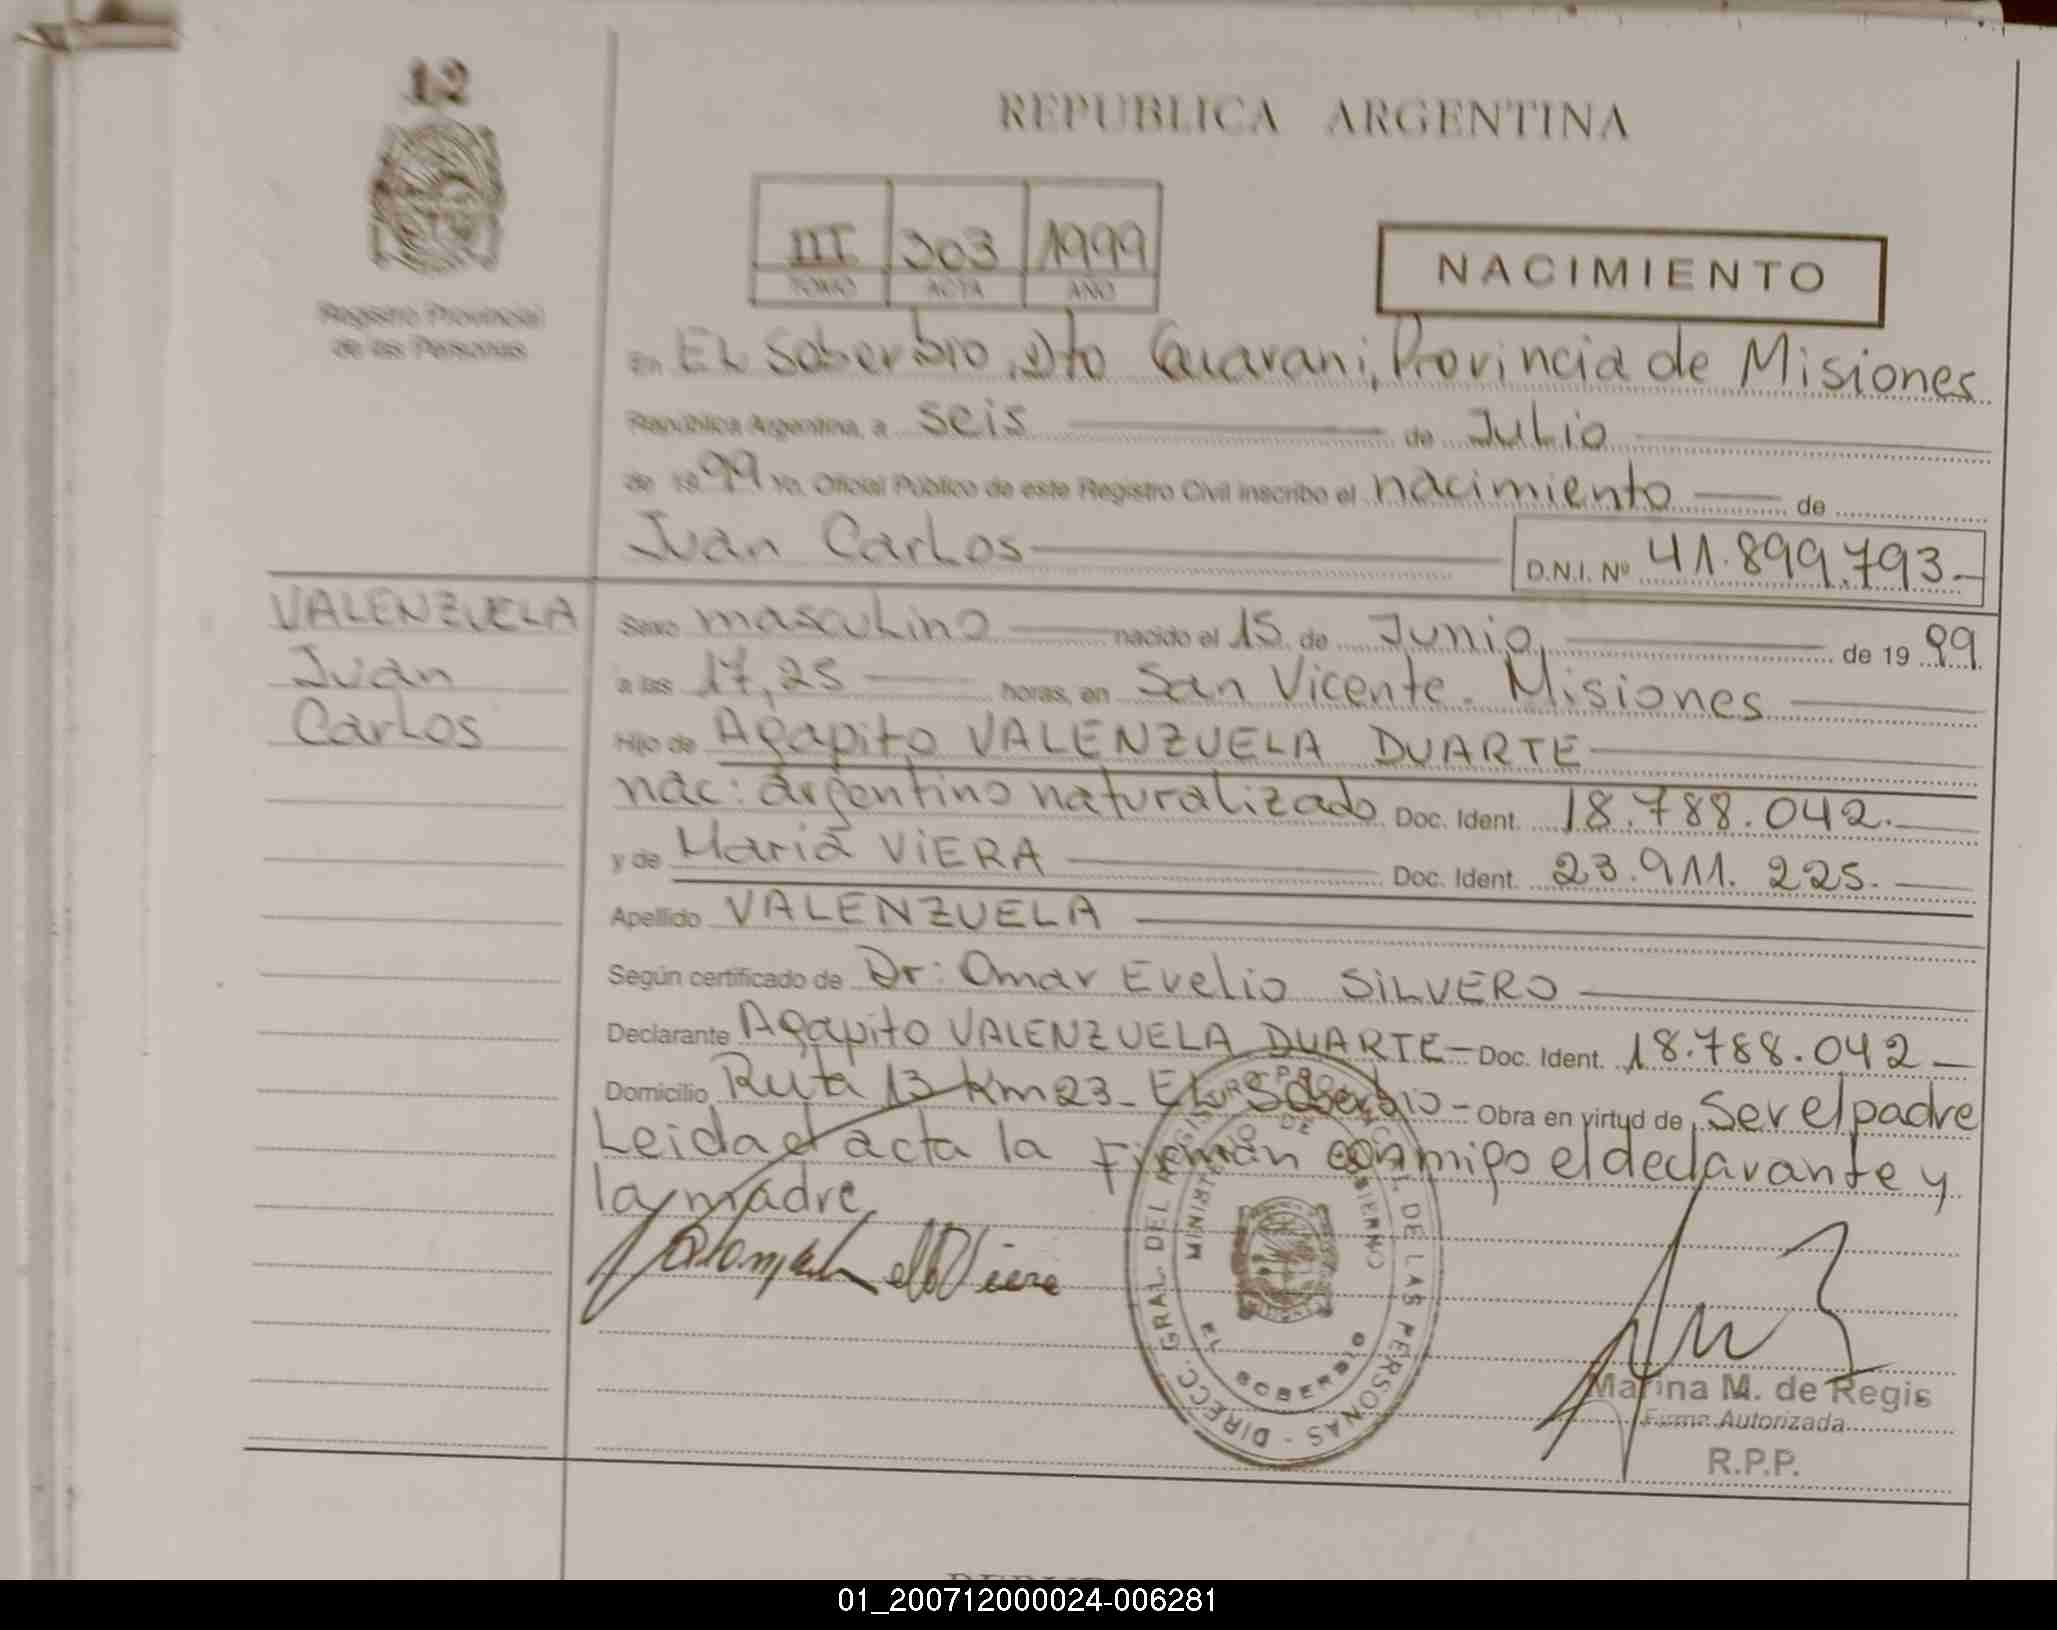 12
REPUBLICA ARGENTINA
III 303 1999
TOMO ACTA AÑO
NACIMIENTO
Registro Provincial
de las Personas
En EL Soberbio, Dto Guarani, Provincia de Misiones
República Argentina, a seis de Julio
de 1999 Yo, Oficial Público de este Registro Civil inscribo el nacimiento de
Juan Carlos D.N.I. Nº 41.899.793.-
VALENZUELA
Juan
Carlos
Sexo masculino nacido el 15 de Junio de 1999
a las 17,25 horas, en San Vicente. Misiones
Hijo de Agapito VALENZUELA DUARTE
nac: argentino naturalizado Doc. Ident. 18.788.042.
y de Maria ViERA Doc. Ident. 23.911.225.
Apellido VALENZUELA
Según certificado de Dr: Omar Evelio SiLVERO
Declarante Agapito VALENZUELA DUARTE- Doc. Ident. 18.788.042
Domicilio Ruta 13 Km 23- EL Soberbio- Obra en virtud de Ser el padre
Leida el acta la Firman conmigo el declarante y
la madre
DIRECC. GRAL. DEL REGISTRO PROVINCIAL DE LAS PERSONAS -
MINISTERIO DE GOBIERNO
EL SOBERBIO
Marina M. de Regis
Firma Autorizada
R.P.P.
01_200712000024-006281